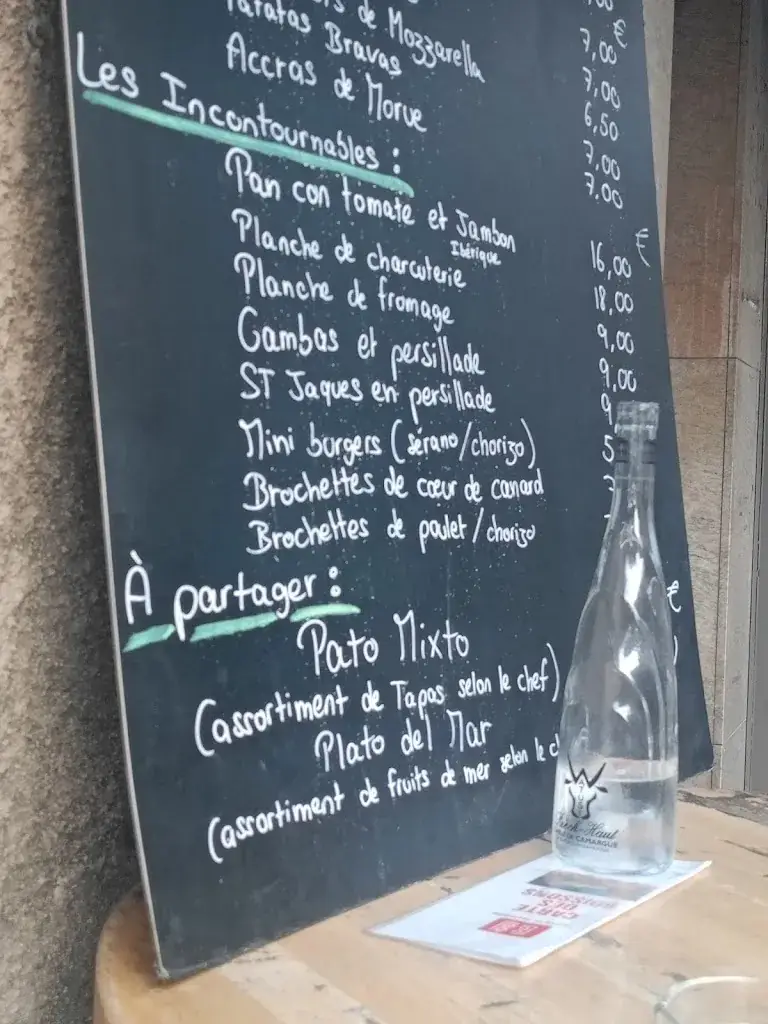 de Mozzarella
Patatas Bravas
Accras de Morue
€
7,00
7,00
6,50
7,00
7,00
Les Incontournables :
€
Pan con tomate et Jambon
Ibérique
16,00
Planche de charcuterie
18,00
Planche de fromage
9,00
Gambas et persillade
9,00
ST Jaques en persillade
9,
Mini burgers (sérano/chorizo)
5
Brochettes de cœur de canard
Brochettes de poulet / chorizo
À partager :
€
Pato Mixto
(assortiment de Tapas selon le chef)
Plato del Mar
(assortiment de fruits de mer selon le c
CAMARGUE
CARTE
DES
BOISSONS